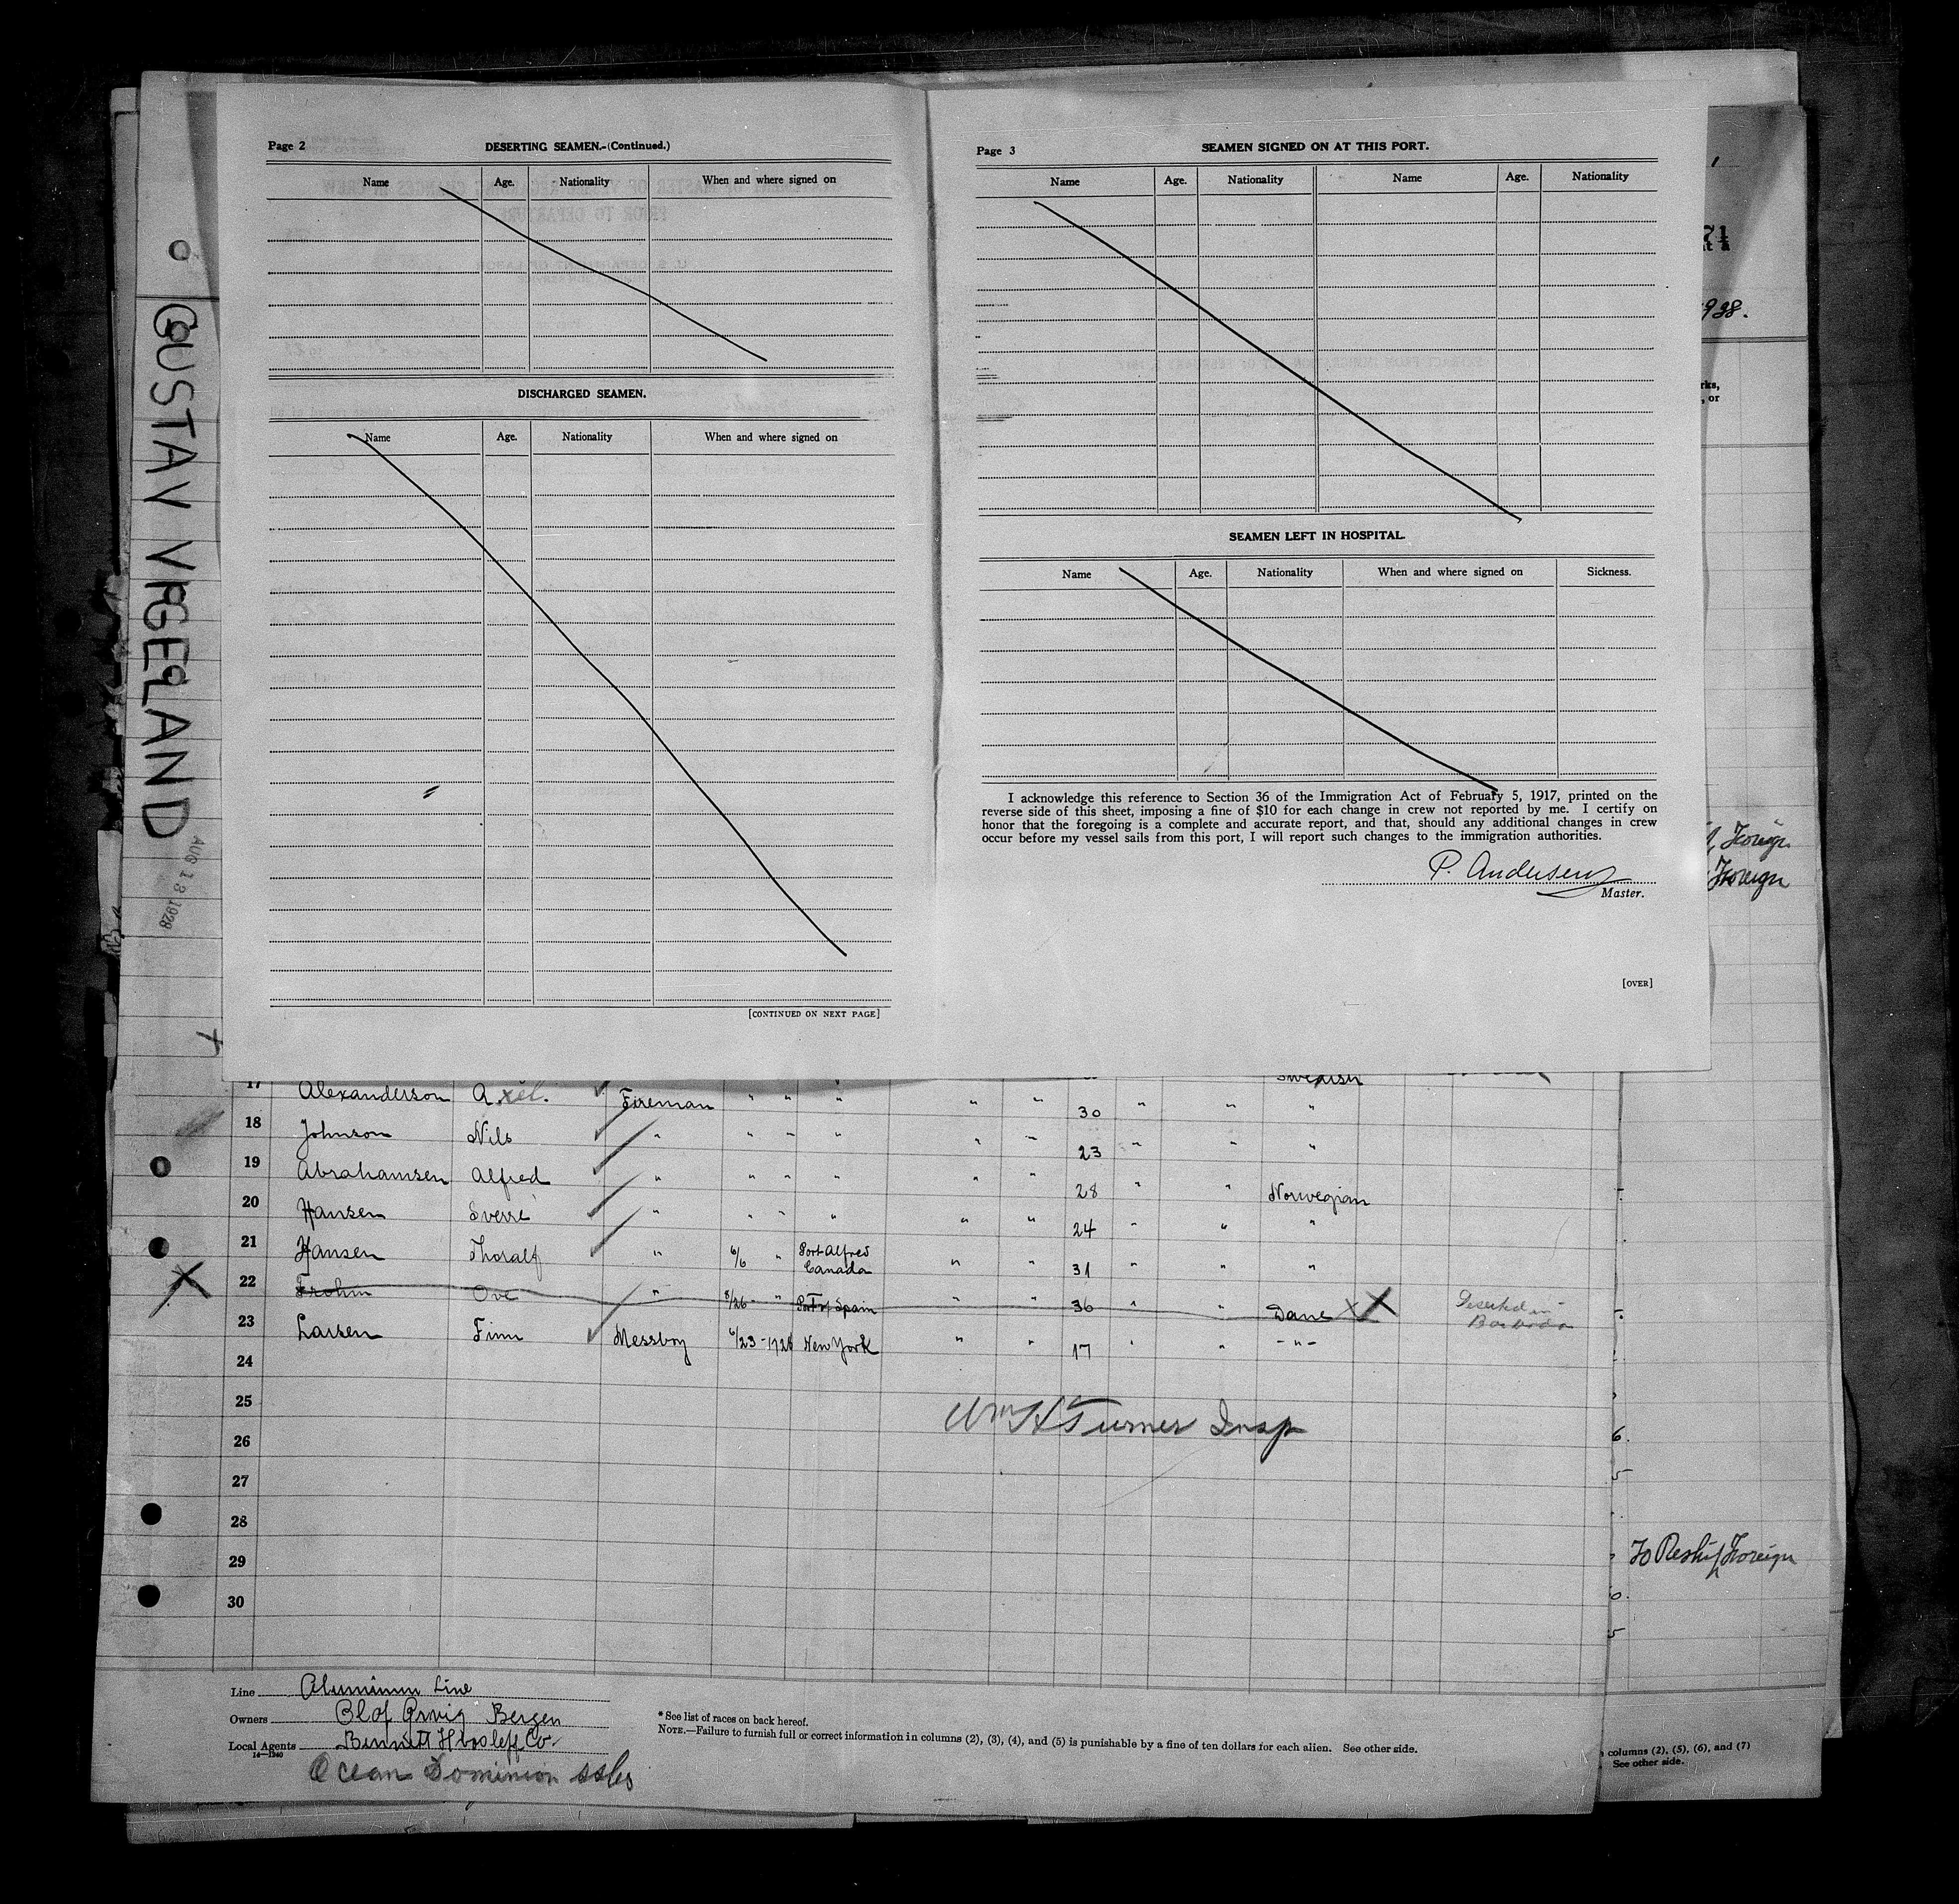 GUSTAV VIGELAND
AUG 13 1928
Page 2
DESERTING SEAMEN.-(Continued.)
Name Age. Nationality When and where signed on
DISCHARGED SEAMEN.
Name Age. Nationality When and where signed on
[CONTINUED ON NEXT PAGE]
Page 3
SEAMEN SIGNED ON AT THIS PORT.
Name Age. Nationality Name Age. Nationality
SEAMEN LEFT IN HOSPITAL.
Name Age. Nationality When and where signed on Sickness.
I acknowledge this reference to Section 36 of the Immigration Act of February 5, 1917, printed on the
reverse side of this sheet, imposing a fine of $10 for each change in crew not reported by me. I certify on
honor that the foregoing is a complete and accurate report, and that, should any additional changes in crew
occur before my vessel sails from this port, I will report such changes to the immigration authorities.
P. Andersen
Master.
[OVER]
Swedish
17 Alexanderson Axel. Fireman " " " " " 30 " " "
18 Johnson Nils " " " " " " 23 " " "
19 Abrahamsen Alfred " " " " " " 28 " " Norwegian
20 Hansen Sverre " " " " " " 24 " " "
21 Hansen Thoralf " 6/6 " Port Alfred Canada " " 31 " " "
22 Frohm Ove " 8/26 " Port of Spain " " 36 " " Dane X X Deserted in
23 Larsen Finn Messboy 6/23-1928 New York " " 17 " " - " -
24
25
Wm H Turner Insp
26
27
28
29
30
Line Aluminum Line
Owners Bergen
Local Agents Co.
14—1240
Ocean Dominion
* See list of races on back hereof.
NOTE.—Failure to furnish full or correct information in columns (2), (3), (4), and (5) is punishable by a fine of ten dollars for each alien. See other side.
7½
rks,
, or
Foreign
Foreign
6.
5
To Reship Foreign
0.
5
columns (2), (5), (6), and (7)
See other side.